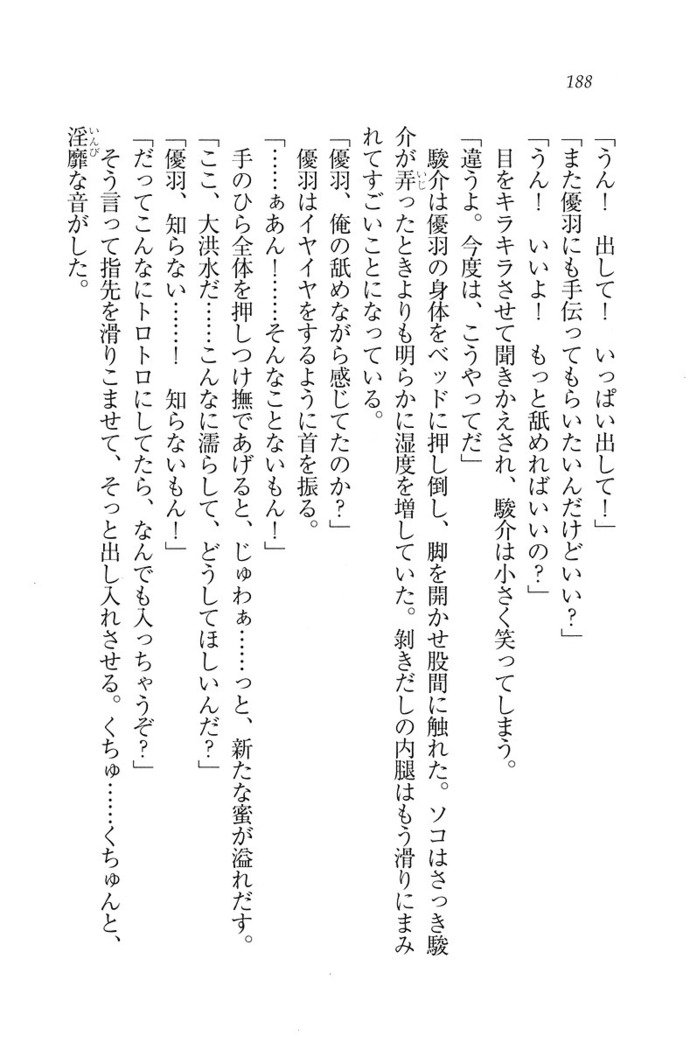 188
「うん！　出して！　いっぱい出して！」
「また優羽にも手伝ってもらいたいんだけどいい？」
「うん！　いいよ！　もっと舐めればいいの？」
目をキラキラさせて聞きかえされ、駿介は小さく笑ってしまう。
「違うよ。今度は、こうやってだ」
駿介は優羽の身体をベッドに押し倒し、脚を開かせ股間に触れた。ソコはさっき駿
介が弄ったときよりも明らかに湿度を増していた。剝きだしの内腿はもう滑りにまみ
れてすごいことになっている。
「優羽、俺の舐めながら感じてたのか？」
優羽はイヤイヤをするように首を振る。
「……ぁあん！……そんなことないもん！」
手のひら全体を押しつけ撫であげると、じゅわぁ……っと、新たな蜜が溢れだす。
「ここ、大洪水だ……こんなに濡らして、どうしてほしいんだ？」
「優羽、知らない……！　知らないもん！」
「だってこんなにトロトロにしてたら、なんでも入っちゃうぞ？」
そう言って指先を滑りこませて、そっと出し入れさせる。くちゅ……くちゅんと、
淫靡な音がした。